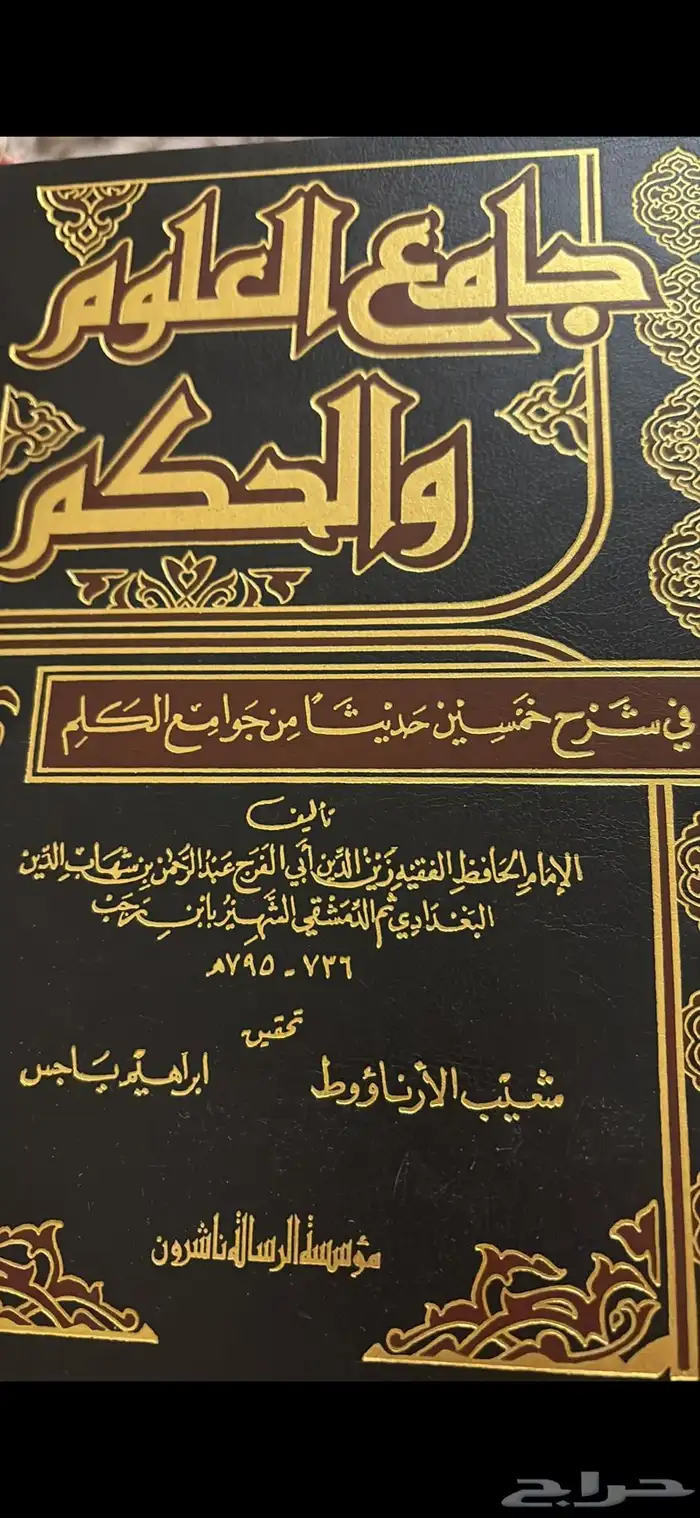 جامع العلوم
والحكم
في شَرْح خَمْسِيْن حَديْثًا مِن جَوامِع الكَلِم
تأليف
الإمام الحافظ الفقيه زَيْن الدِّين أبي الفَرَج عَبد الرَّحمٰن بن شهَاب الدِّيْن
البَغْدَادِي ثم الدِّمَشْقِي الشَّهِيْر بابْن رَجَب
٧٣٦ - ٧٩٥ هـ
تحقيق
شعَيْب الأرناؤوط ابراهيْم بَاجس
مؤسسة الرسالة ناشرون
حراج